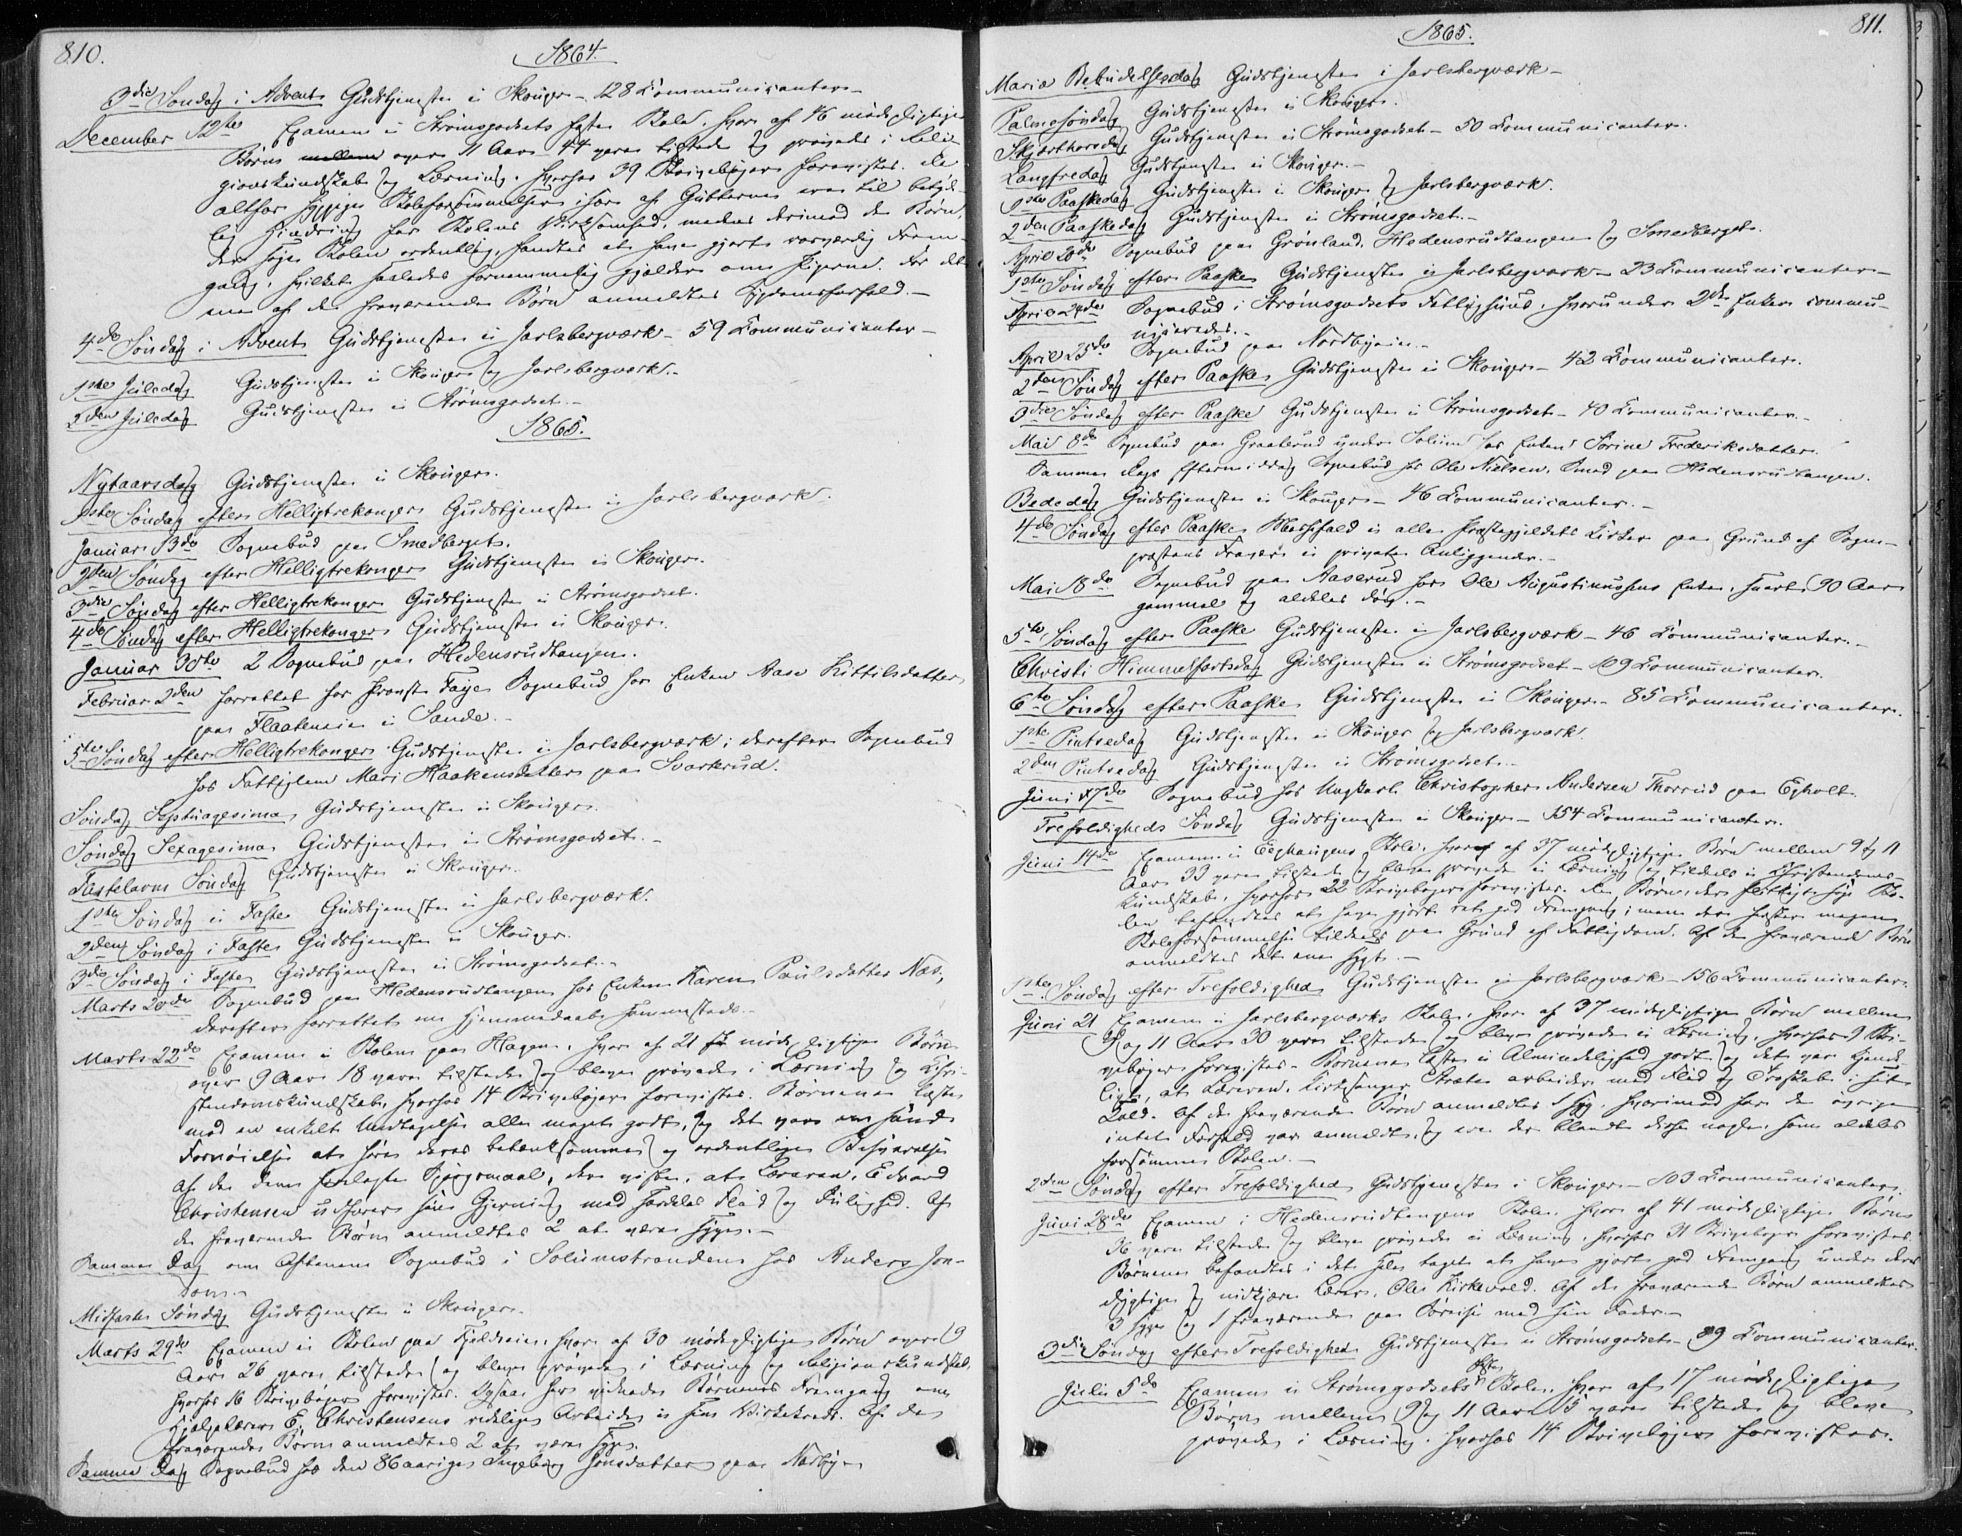 810.
1864.
3die Søndag i Advent Gudstjeneste i Skouger – 128 Communicanter –
December 12te Examen i Strømsgodsets faste Skole, hvor af 46 mødepligtige
Børn mellem over 11 Aar 44 vare tilstede og prøvedes i Reli-
gionskundskab og Læsning, hvorhos 39 Skrivebøger forevistes. De
altfor hyppige Skoleforsømmelser især af Gutterne ere til betyde-
lig Hindring for Skolens Virksomhed, medens derimod de Børn,
der søge Skolen ordentlig, fandtes at have gjort Frem-
gang, hvilket saaledes fornemmelig gjælder om Pigerne. For et
een af de fraværende Børn anmeldtes Sygdomsforfald. –
4de Søndag i Advent Gudstjeneste i Jarlsbergværk – 59 Communicanter –
1ste Juledag Gudstjeneste i Skouger og Jarlsbergværk. –
2den Juledag Gudstjeneste i Strømsgodset. –
1865.
Nytaarsdag Gudstjeneste i Skouger.
1ste Søndag efter Helligtrekonger Gudstjeneste i Jarlsbergværk.
Januar 13de Sognebud paa Smedberget.
2den Søndag efter Helligtrekonger Gudstjeneste i Skouger.
3die Søndag efter Helligtrekonger Gudstjeneste i Strømsgodset.
4de Søndag efter Helligtrekonger Gudstjeneste i Skouger.
Januar 30te 2 Sognebud paa Hedensrudtangen.
Februar 2den forrettet for Provst Faye Sognebud hos Enken Aase Kittilsdatter
paa Flaateneie i Sande. –
5te Søndag efter Helligtrekonger Gudstjeneste i Jarlsbergværk; derefter Sognebud
hos Fattiglem Mari Haakensdatter paa Svarterud.
Søndag Septuagesima Gudstjeneste i Skouger.
Søndag Sexagesima Gudstjeneste i Strømsgodset. –
Fastelavns Søndag Gudstjeneste i Skouger.
1ste Søndag i Faste Gudstjeneste i Jarlsbergværk.
2den Søndag i Faste Gudstjeneste i Skouger.
3die Søndag i Faste Gudstjeneste i Strømsgodset. –
Marts 20de Sognebud paa Hedensrudtangen hos Enken Karen Paulsdatter Næs,
derefter forrettet en Hjemmedaab sammesteds. –
Marts 22de Examen i Skolen paa Hagen, hvor af 21 mødepligtige Børn
over 9 Aar 18 vare tilstede og bleve prøvede i Læsning og Chri-
stendomskundskab, hvorhos 14 Skrivebøger forevistes. Børnene læste
med en enkelt Undtagelse alle meget godt, og det var en sand
Fornøielse at høre deres betænksomme og ordentlige Besvarelse
af de dem forelagte Spørgsmaal, der viste, at Læreren, Edvard
Christensen udfører sin Gjerning med Flid og Dulighed. Af
de fraværende Børn anmeldtes 2 at være syge. –
Samme Dag om Aftenen Sognebud i Solumstranden hos Anders Jon-
son. –
Midfaste Søndag Gudstjeneste i Skouger. –
Marts 29de Examen i Skolen paa Fjeldseie, hvor af 30 mødepligtige Børn over 9
Aar 26 vare tilstede og bleve prøvede i Læsning og Religionskundskab,
hvorhos 16 Skrivebøger forevistes. Ogsaa her vidnede Børnenes Fremgang om
Hjælpelærer E. Christensens redelige Arbeide i sin Virkekreds. Af de
fraværende Børn anmeldtes 2 at være syge.
Samme Dag Sognebud hos den 86aarige Ingeborg Jonsdatter paa Nørby –
1865.
811.
Mariæ Bebudelsesdag Gudstjeneste i Jarlsbergværk –
Palmesøndag Gudstjeneste i Skouger.
Skjærthorsdag Gudstjeneste i Strømsgodset – 50 Communicanter.
Langfredag Gudstjeneste i Skouger. –
1ste Paaskedag Gudstjeneste i Skouger og Jarlsbergværk.
2den Paaskedag Gudstjeneste i Strømsgodset. –
April 20de Sognebud paa Grønland, Hedensrudtangen og Smedberget.
1ste Søndag efter Paaske Gudstjeneste i Jarlsbergværk – 23 Communicanter –
April 24de Sognebud i Strømsgodsets Fattighuus, hvorunder 2de Enker commu-
niceredes. –
April 25de Sognebud paa Nordbyeie. –
2den Søndag efter Paaske Gudstjeneste i Skouger – 42 Communicanter.
3die Søndag efter Paaske Gudstjeneste i Strømsgodset – 40 Communicanter. –
Mai 8de Sognebud paa Graaterud under Solum hos Enken Sørine Frederiksdatter.
Samme Dags Eftermiddag Sognebud hos Ole Nielsen Smed paa Hedensrudtangen.
Bededag Gudstjeneste i Skouger – 46 Communicanter. –
4de Søndag efter Paaske Messefald i alle Præstegjeldets Kirker paa Grund af Sogne-
præstens Fravær i private Anliggender. –
Mai 18de Sognebud paa Aaserud hos Ole Augustinussens Enke, snart 90 Aar
gammel og aldeles døv. –
5te Søndag efter Paaske Gudstjeneste i Jarlsbergværk – 46 Communicanter. –
Christi Himmelfartsdag Gudstjeneste i Strømsgodset – 109 Communicanter.
6te Søndag efter Paaske Gudstjeneste i Skouger – 85 Communicanter.
1ste Pintsedag Gudstjeneste i Skouger og Jarlsbergværk.
2den Pintsedag Gudstjeneste i Strømsgodset. –
Juni 7de Sognebud hos Ungkarl Christopher Andersen Thorrud paa Egholt.
Trefoldigheds Søndag Gudstjeneste i Skouger – 154 Communicanter.
Juni 14de Examen i Skole, hvor af 37 mødepligtige Børn mellem 9 og 11
Aar 33 vare tilstede og bleve prøvede i Læsning og tildels i Christendoms-
kundskab, hvorhos 22 Skrivebøger forevistes. De Børn, der flittigst søge Sko-
len befandtes at have gjort ret god Fremgang; men der hersker megen
Skoleforsømmelse tildeels paa Grund af Fattigdom. Af de fraværende Børn
anmeldtes det ene sygt. –
1ste Søndag efter Trefoldighed Gudstjeneste i Jarlsbergværk – 156 Communicanter.
Juni 21 Examen i Jarlsbergværks Skole, hvor af 37 mødepligtige Børn mellem
9 og 11 Aar 30 vare tilstede og bleve prøvede i Læsning, hvorhos 9 Skri-
vebøger forevistes. Børnene læste i Almindelighed godt, og det var kjende-
ligt, at Læreren, Kirkesanger Stræte arbeider med Flid og Troskab i sit
Kald. Af de fraværende Børn anmeldtes 1 syg, hvorimod for de øvrige
intet Forfald var anmeldt, og ere der blandt disse nogle, som aldeles
forsømme Skolen. –
2den Søndag efter Trefoldighed Gudstjeneste i Skouger – 103 Communicanter.
Juni 28de Examen i Hedensrudtangens Skole, hvor af 41 mødepligtige Børn
36 vare tilstede og bleve prøvede i Læsning, hvorhos 31 Skrivebøger forevistes.
Børnene befandtes i det Hele taget at have gjort god Fremgang under den
dygtige og nidkjære Lærer, Ole Kirkevold. Af de fraværende Børn anmeldtes
3 syge og 1 fraværende paa Søreise med sin Fader –
3die Søndag efter Trefoldighed Gudstjeneste i Strømsgodset – 89 Communicanter.
Juli 5de Examen i Strømsgodsets faste Skole, hvor af 17 mødepligtige
Børn mellem 9 og 11 Aar 15 vare tilstede og bleve
prøvede i Læsning, hvorhos 14 Skrivebøger forevistes.